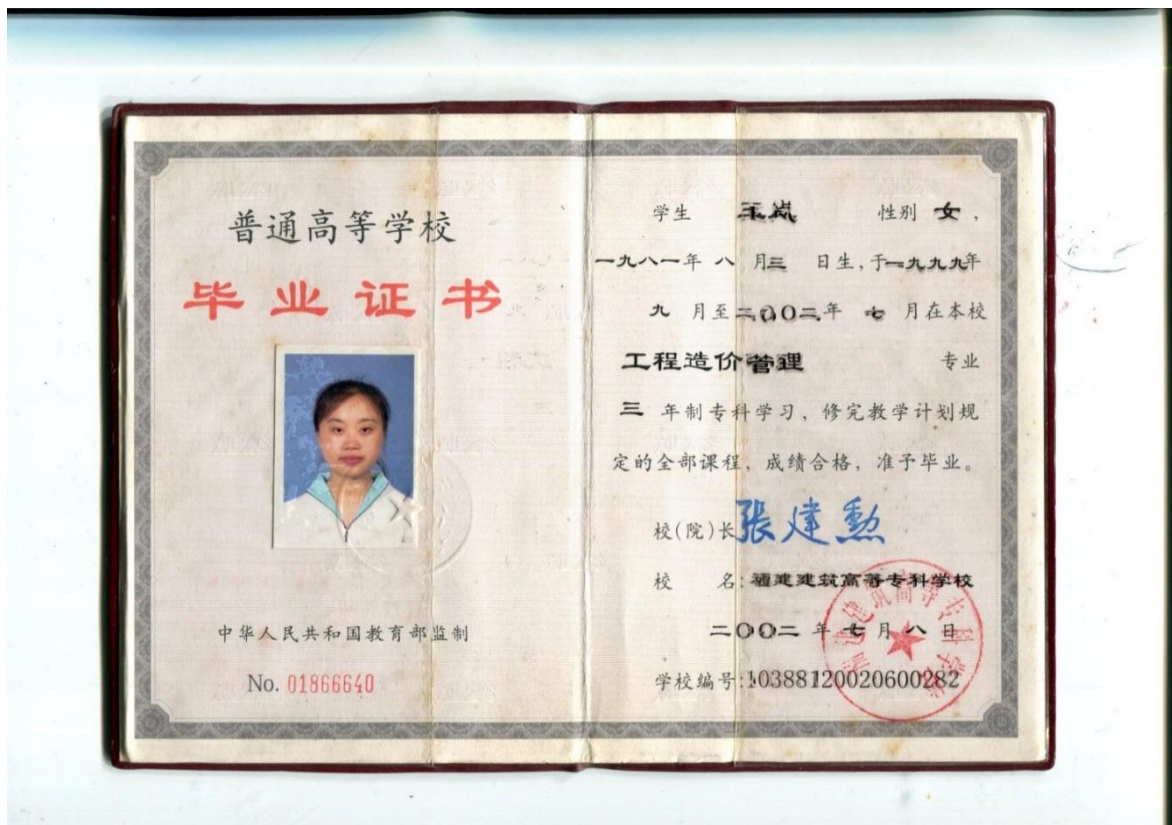 普通高等学校
毕业证书
中华人民共和国教育部监制
No. 01866640
学生 王岚 性别 女，
一九八一年 八 月三 日生，于一九九九年
九 月至二〇〇二年 七 月在本校
工程造价管理 专业
三 年制专科学习，修完教学计划规
定的全部课程，成绩合格，准予毕业。
校(院)长 张建勲
校 名：福建建筑高等专科学校
二〇〇二 年 七 月 八 日
学校编号：10388120020600282
福建建筑高等专科学校